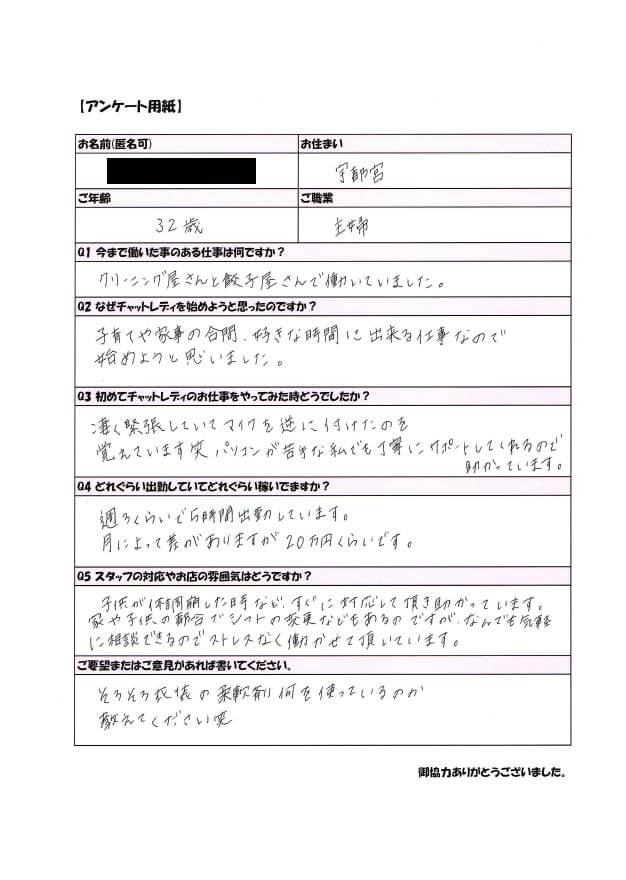 【アンケート用紙】
お名前(匿名可) お住まい
宇都宮
ご年齢 ご職業
32歳 主婦
Q1 今まで働いた事のある仕事は何ですか？
クリーニング屋さんと餃子屋さんで働いていました。
Q2 なぜチャットレディを始めようと思ったのですか？
子育てや家事の合間、好きな時間に出来る仕事なので
始めようと思いました。
Q3 初めてチャットレディのお仕事をやってみた時どうでしたか？
凄く緊張していてマイクを逆に付けたのを
覚えています笑 パソコンが苦手な私でも丁寧にサポートしてくれるので
助かっています。
Q4 どれぐらい出勤していてどれぐらい稼いでますか？
週3くらいで5時間出勤しています。
月によって差がありますが20万円くらいです。
Q5 スタッフの対応やお店の雰囲気はどうですか？
子供が体調崩した時など、すぐに対応して頂き助かっています。
家や子供の都合でシフトの変更などもあるのですが、なんでも気軽
に相談できるのでストレスなく働かせて頂いています。
ご要望またはご意見があれば書いてください。
そろそろ衣裳の柔軟剤何を使っているのか
教えてください笑
御協力ありがとうございました。